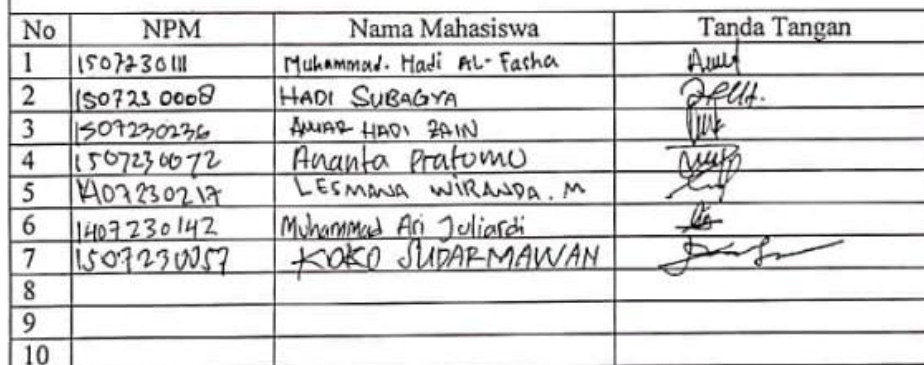 No NPM Nama Mahasiswa Tanda Tangan
1 1507230111 Muhammad. Hadi AL-Fasha
2 1507230008 HADI SUBAGYA
3 1507230236 ANWAR HADI ZAIN
4 1507230072 Ananta Pratomo
5 1407230217 LESMANA WIRANDA. M
6 1407230142 Muhammad Ari Juliardi
7 1507230057 KOKO SUDARMAWAN
8
9
10